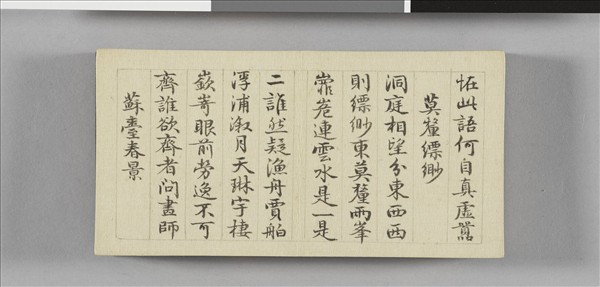 恠此語何自真虛囂
莫釐縹緲
洞庭相望分東西西
則縹緲東莫釐兩峯
連雲水是一是
二誰然疑漁舟賈舶
浮浦漵月天琳宇棲
嶔嵜眼前勞逸不可
齊誰欲齊者問畫師
蘇臺春景